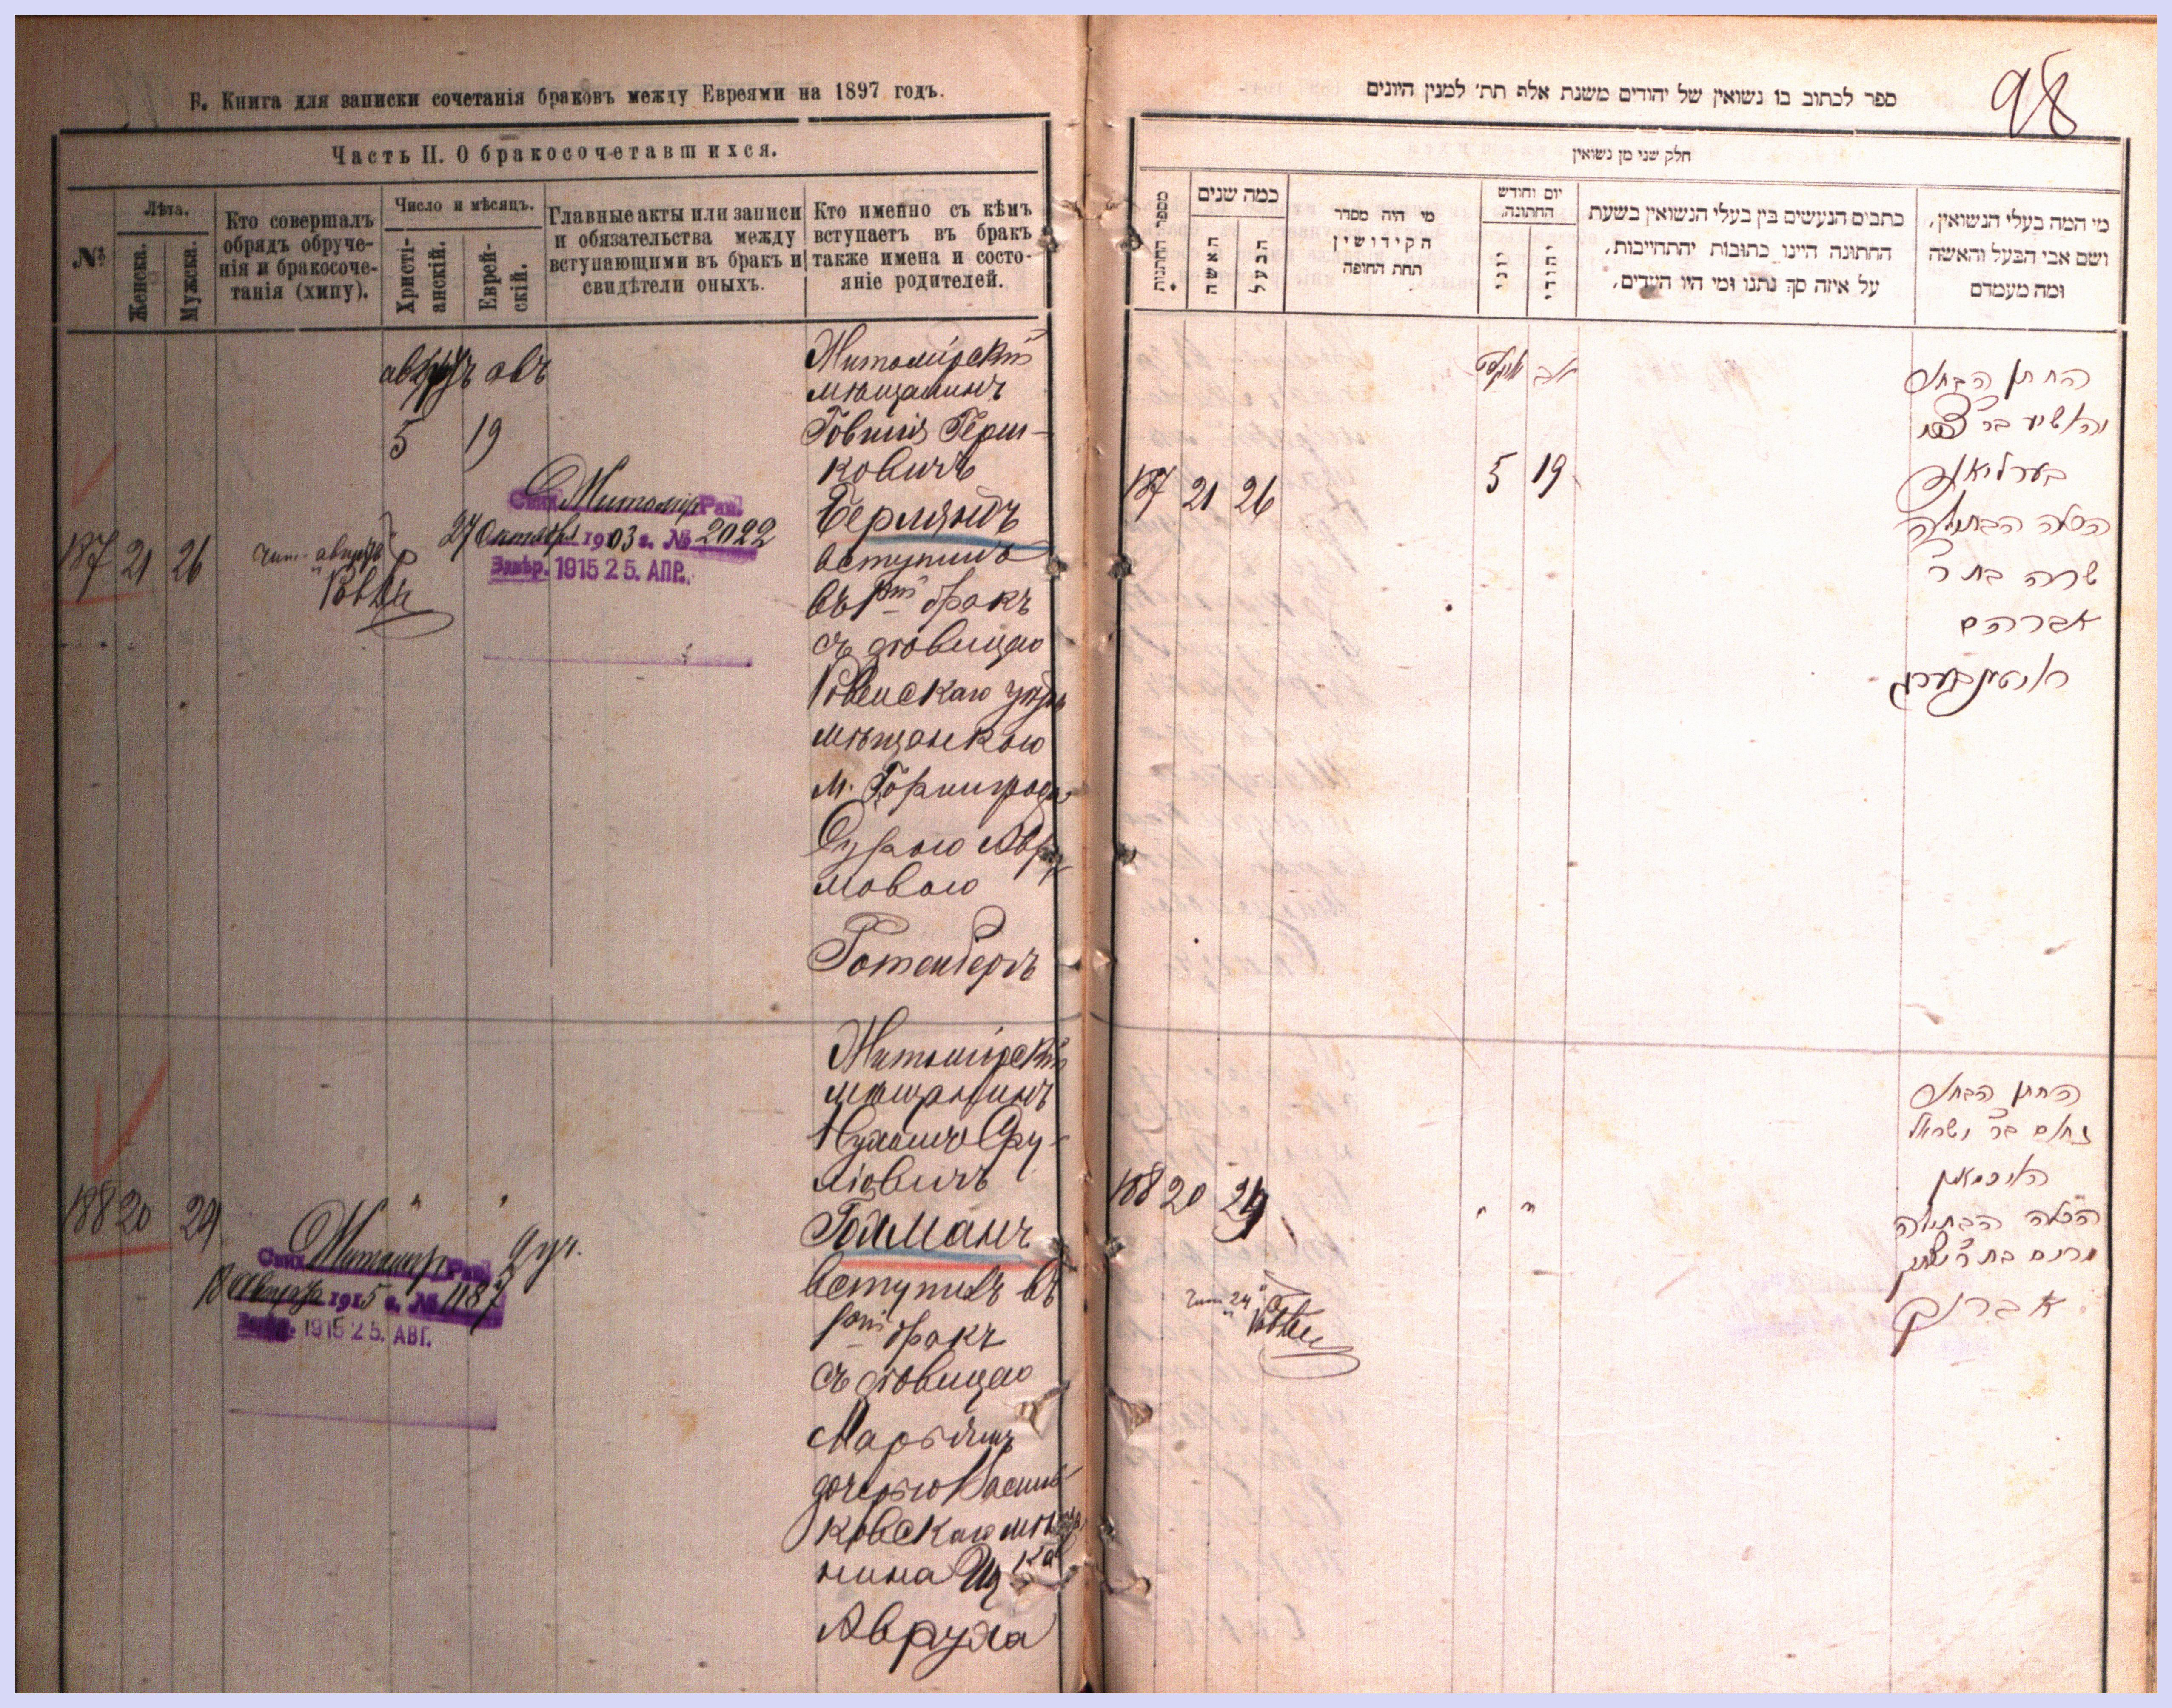 Б. Книга для записки сочетанія браковъ между Евреями на 1897 годъ.
Часть II. О бракосочетавшихся.
№
Лѣта.
Женска.
Мужска.
Кто совершалъ
обрядъ обруче-
нія и бракосоче-
танія (хипу).
Число и мѣсяцъ.
Христі-
анскій.
Еврей-
скій.
Главные акты или записи
и обязательства между
вступающими въ бракъ и
свидѣтели оныхъ.
Кто именно съ кѣмъ
вступаетъ въ бракъ
также имена и состо-
яніе родителей.
авъ
5 19
187 21 26
Свид. Житомир. Рав.
27 Октября 1903 г. № 2022
Завѣр. 1915 25. АПР.
Житомірскій
мѣщанинъ
Говшія Герш-
ковичъ
Берляндъ
вступилъ
въ 1ый бракъ
съ дѣвицею
Ровенскаго
мѣщанкою
м.
Сурою
мовою
Ротенбергъ
188 20 24
" "
Свид. Житомир. Рав.
18 Августа 1915 г. № 1187
1915 25. АВГ.
Житомірскій
мѣщанинъ
Нухимъ Сру-
лiовичъ
Гохманъ
вступилъ въ
1ый бракъ
съ дѣвицею
Марьямъ
дочерью Василь-
ковскаго
нина
Авруха
98
ספר לכתוב בו נשואין של יהודים משנת אלף תת׳ למנין היונים
חלק שני מן נשואין
מספר החתנות
כמה שנים
האשה
הבעל
מי היה מסדר
הקידושין
תחת החופה
יום וחודש
החתונה,
יוני
יהודי
כתבים הנעשים בין בעלי הנשואין בשעת
החתונה היינו כתובות יהתחייבות,
על איזה סך נתנו ומי היו העידים,
מי המה בעלי הנשואין,
ושם אבי הבעל והאשה
ומה מעמדם
אויגוסט אב
187 21 26 5 19
החתן הבחור
בערליאנד
הכלה הבתולה
שרה בת ר'
אברהם
ראטינבערג
188 20 24 " "
החתן הבחור
נחום בר ישראל
האכמאן
הכלה הבתולה
מרים בת ר' יצחק